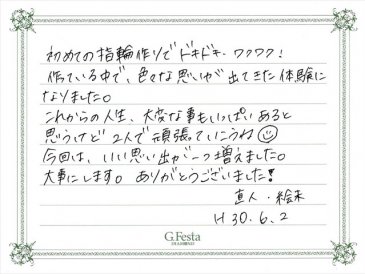 初めての指輪作りでドキドキ、ワクワク！
作っている中で、色々な思いが出てきた体験に
なりました。
これからの人生、大変な事もいっぱいあると
思うけど2人で頑張っていこうね
今回は、いい思い出が一つ増えました。
大事にします。ありがとうございました！
直人・絵未
H30.6.2
G.Festa